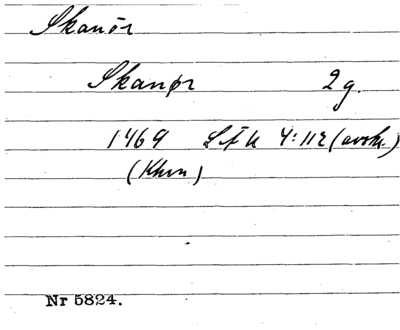 Skanör
Skanør 2 g.
1469 SFU 4:112 (avskr.)
(Khvn)
Nr 5824.